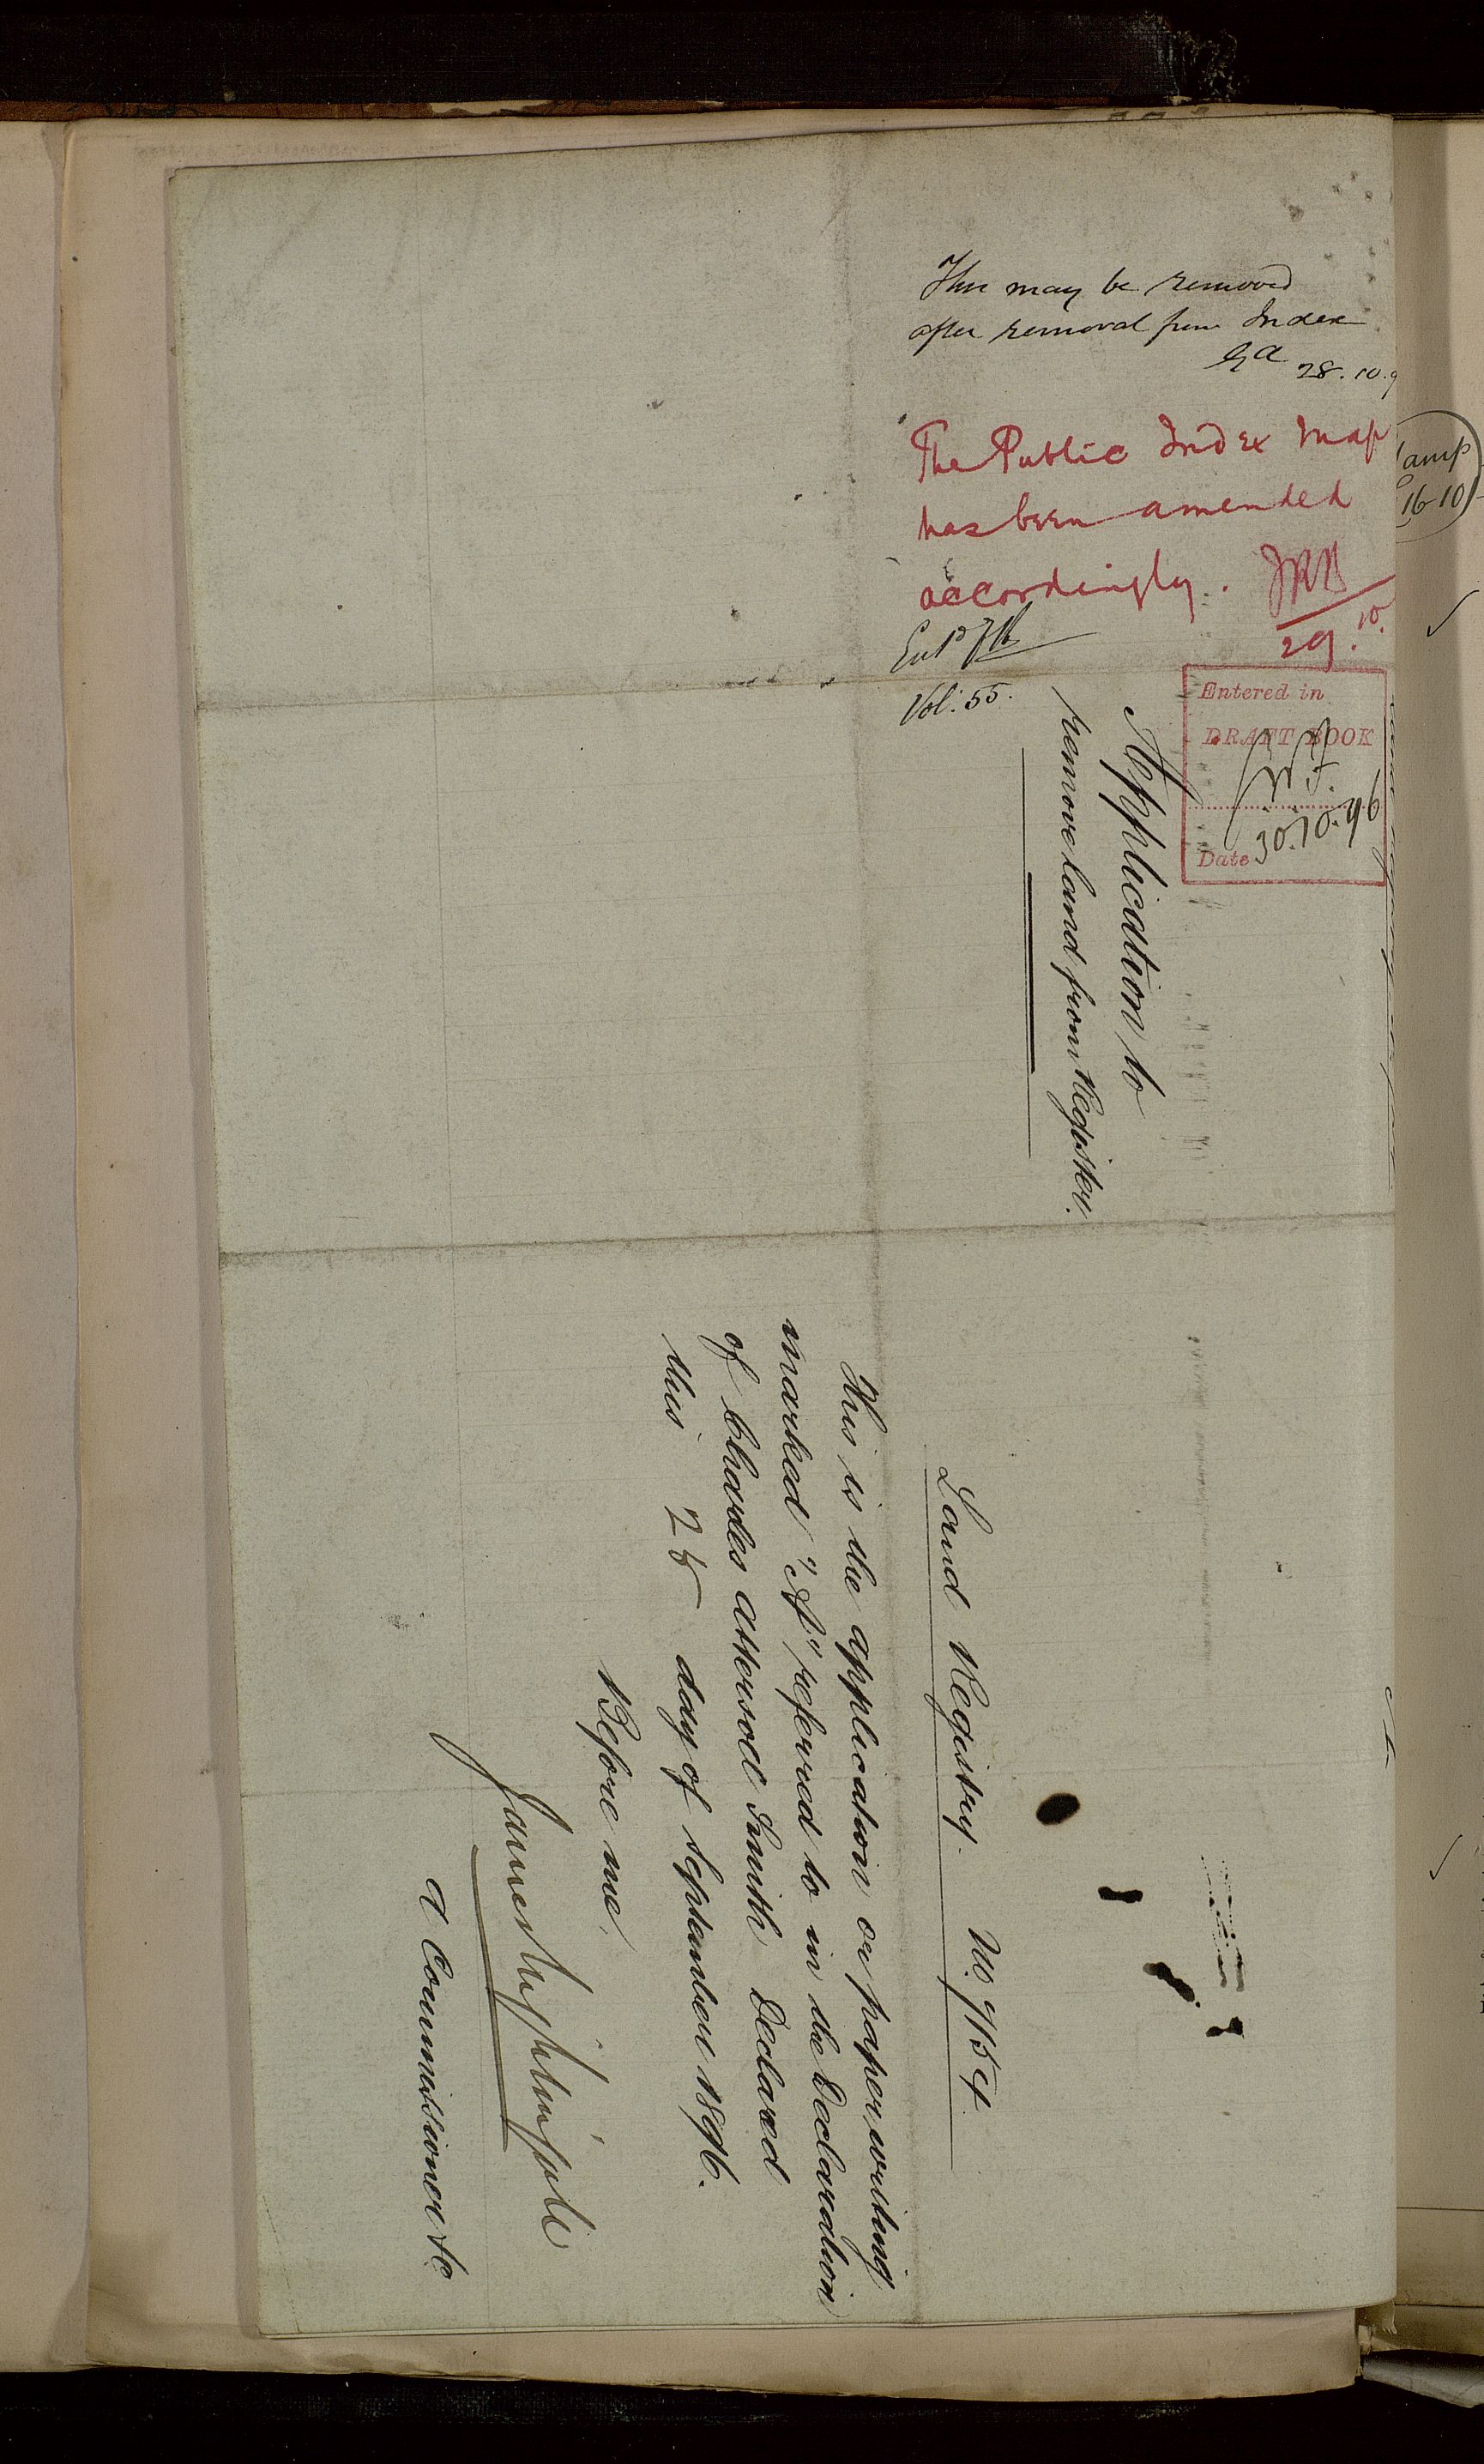 This may be removed
after removal from Index
28.10.9
The Public Index Map
has been amended
accordingly.
29.10.
Vol: 55.
Entered in
DRAFT BOOK
30.10.96
Date
Application to
remove land from Register.
Land Registry. No. 7154
This is the application or paper writing
marked "A" referred to in the Declaration
of Charles Attersoll Smith Declared
this 28 day of September 1896.
Before me
James
A Commissioner &c
amp
16-10